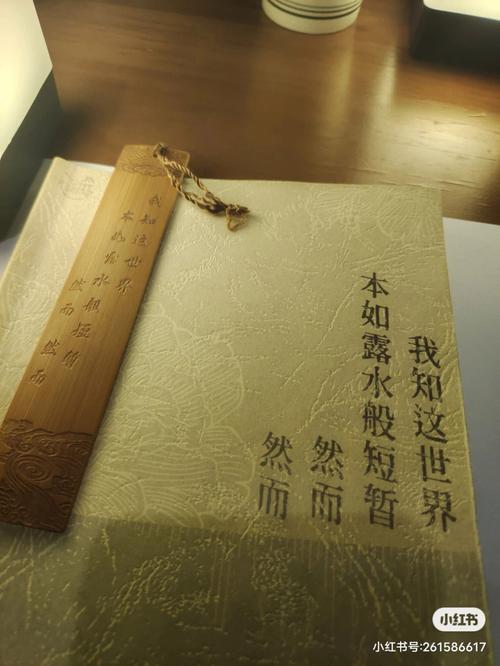 我知这世界
本如露水般短暂
然而
然而
我知这世界
本如露水般短暂
然而
然而
小红书
小红书号:261586617